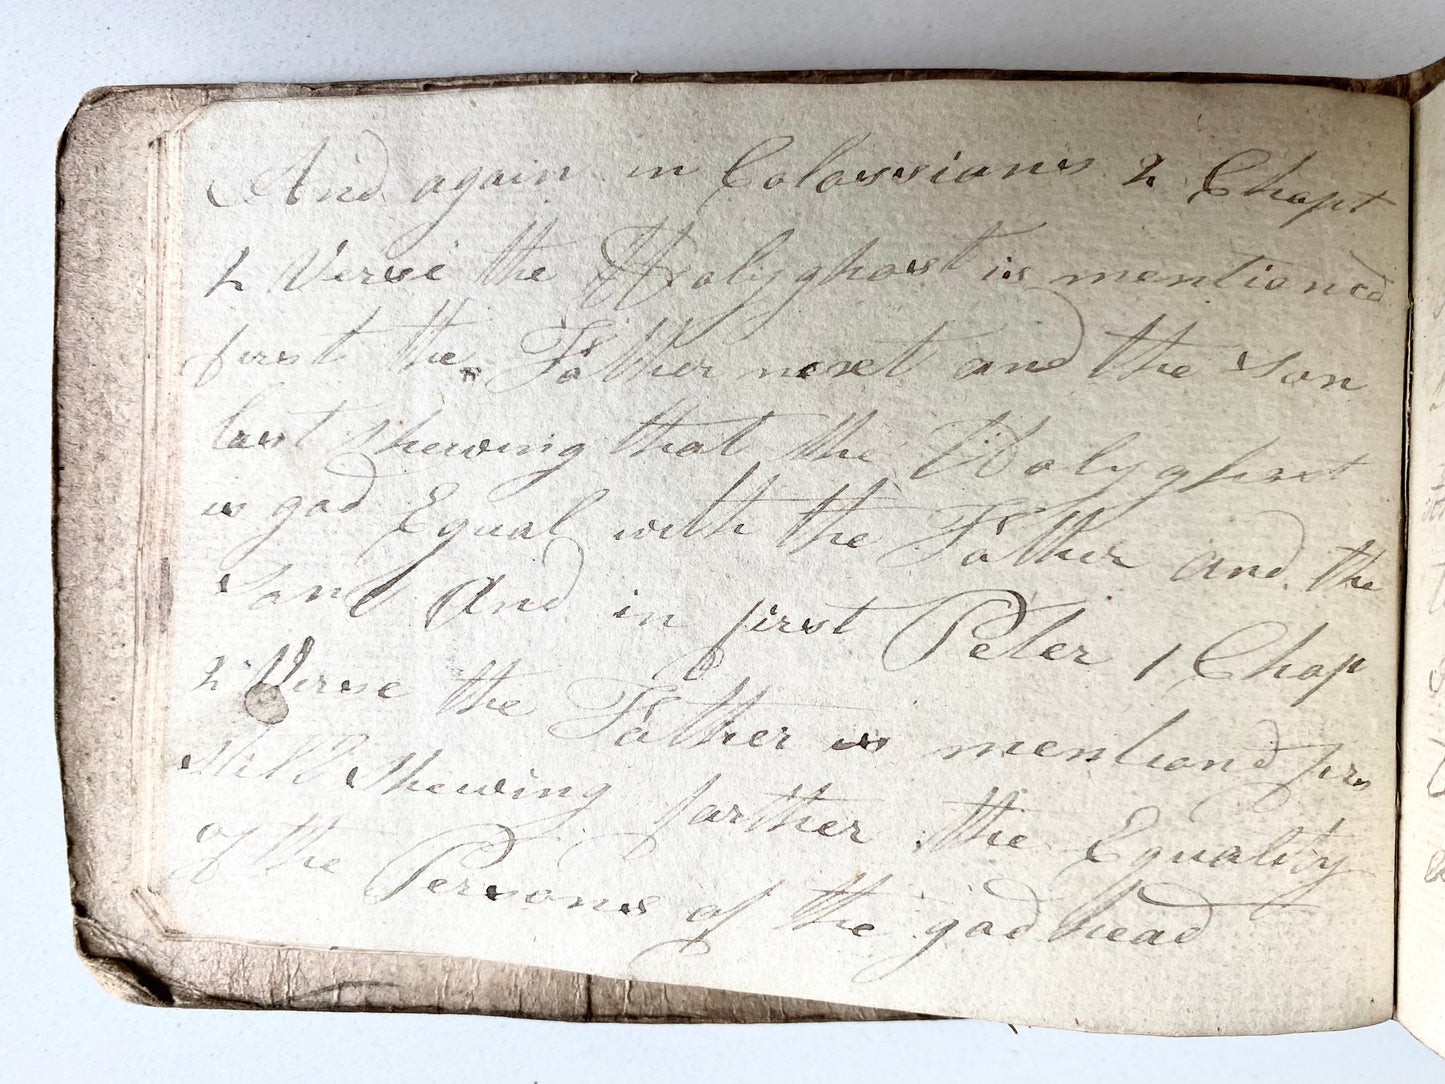 And again in Colossians 2 Chapt
2 Verse the Holyghost is mentioned
first the Father next and the Son
last shewing that the Holyghost
is god Equal with the Father and the
Son And in first Peter 1 Chap
2 Verse the Father is mentiond firs
still shewing farther the Equality
of the Persons of the godhead